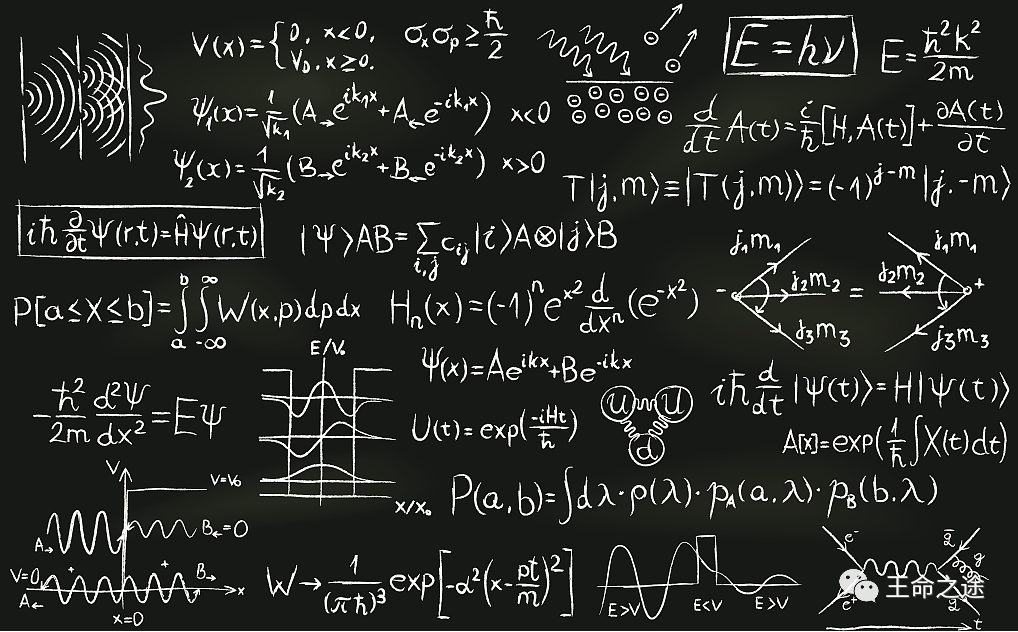 V(x)={0, x<0, V₀, x≥0.
σₓσₚ≥ħ/2
E=hν
E=ħ²k²/2m
Ψ₁(x)=1/√k₁(A→e^{ik₁x}+A←e^{-ik₁x}) x<0
d/dt A(t)=i/ħ[H,A(t)]+∂A(t)/∂t
Ψ₂(x)=1/√k₂(B→e^{ik₂x}+B←e^{-ik₂x}) x>0
T|j,m⟩≡|T(j,m)⟩=(-1)^{j-m}|j.-m⟩
iħ ∂/∂t Ψ(r,t)=ĤΨ(r,t)
|Ψ⟩AB=∑_{i,j}c_{ij}|i⟩A⊗|j⟩B
j₁m₁ j₂m₂ j₃m₃ - = j₁m₁ j₂m₂ j₃m₃ +
P[a≤X≤b]=∫_a^b∫_{-∞}^{∞}W(x,p)dpdx
Hₙ(x)=(-1)ⁿe^{x²} d/dxⁿ(e^{-x²})
E/V₀
x/x₀
Ψ(x)=Ae^{ikx}+Be^{-ikx}
iħ d/dt|Ψ(t)⟩=H|Ψ(t)⟩
-ħ²/2m d²Ψ/dx²=EΨ
U(t)=exp(-iHt/ħ)
u u d
A[x]=exp(1/ħ∫X(t)dt)
P(a,b)=∫dλ·ρ(λ)·p_A(a,λ)·p_B(b.λ)
V
V=V₀
A→ B←=0
V=0 + + B→
A← x
x=0
W→1/(πħ)³exp[-α²(x-pt/m)²]
E>V E<V E>V
e⁻ g
e⁺ t
王命之途